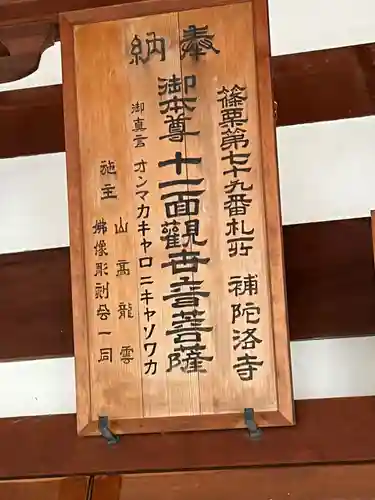 奉納
篠栗第七十九番札所 補陀洛寺
御本尊 十一面觀世音菩薩
御真言 オンマカキャロニキャソワカ
施主 山高龍雲
佛像彫刻会一同